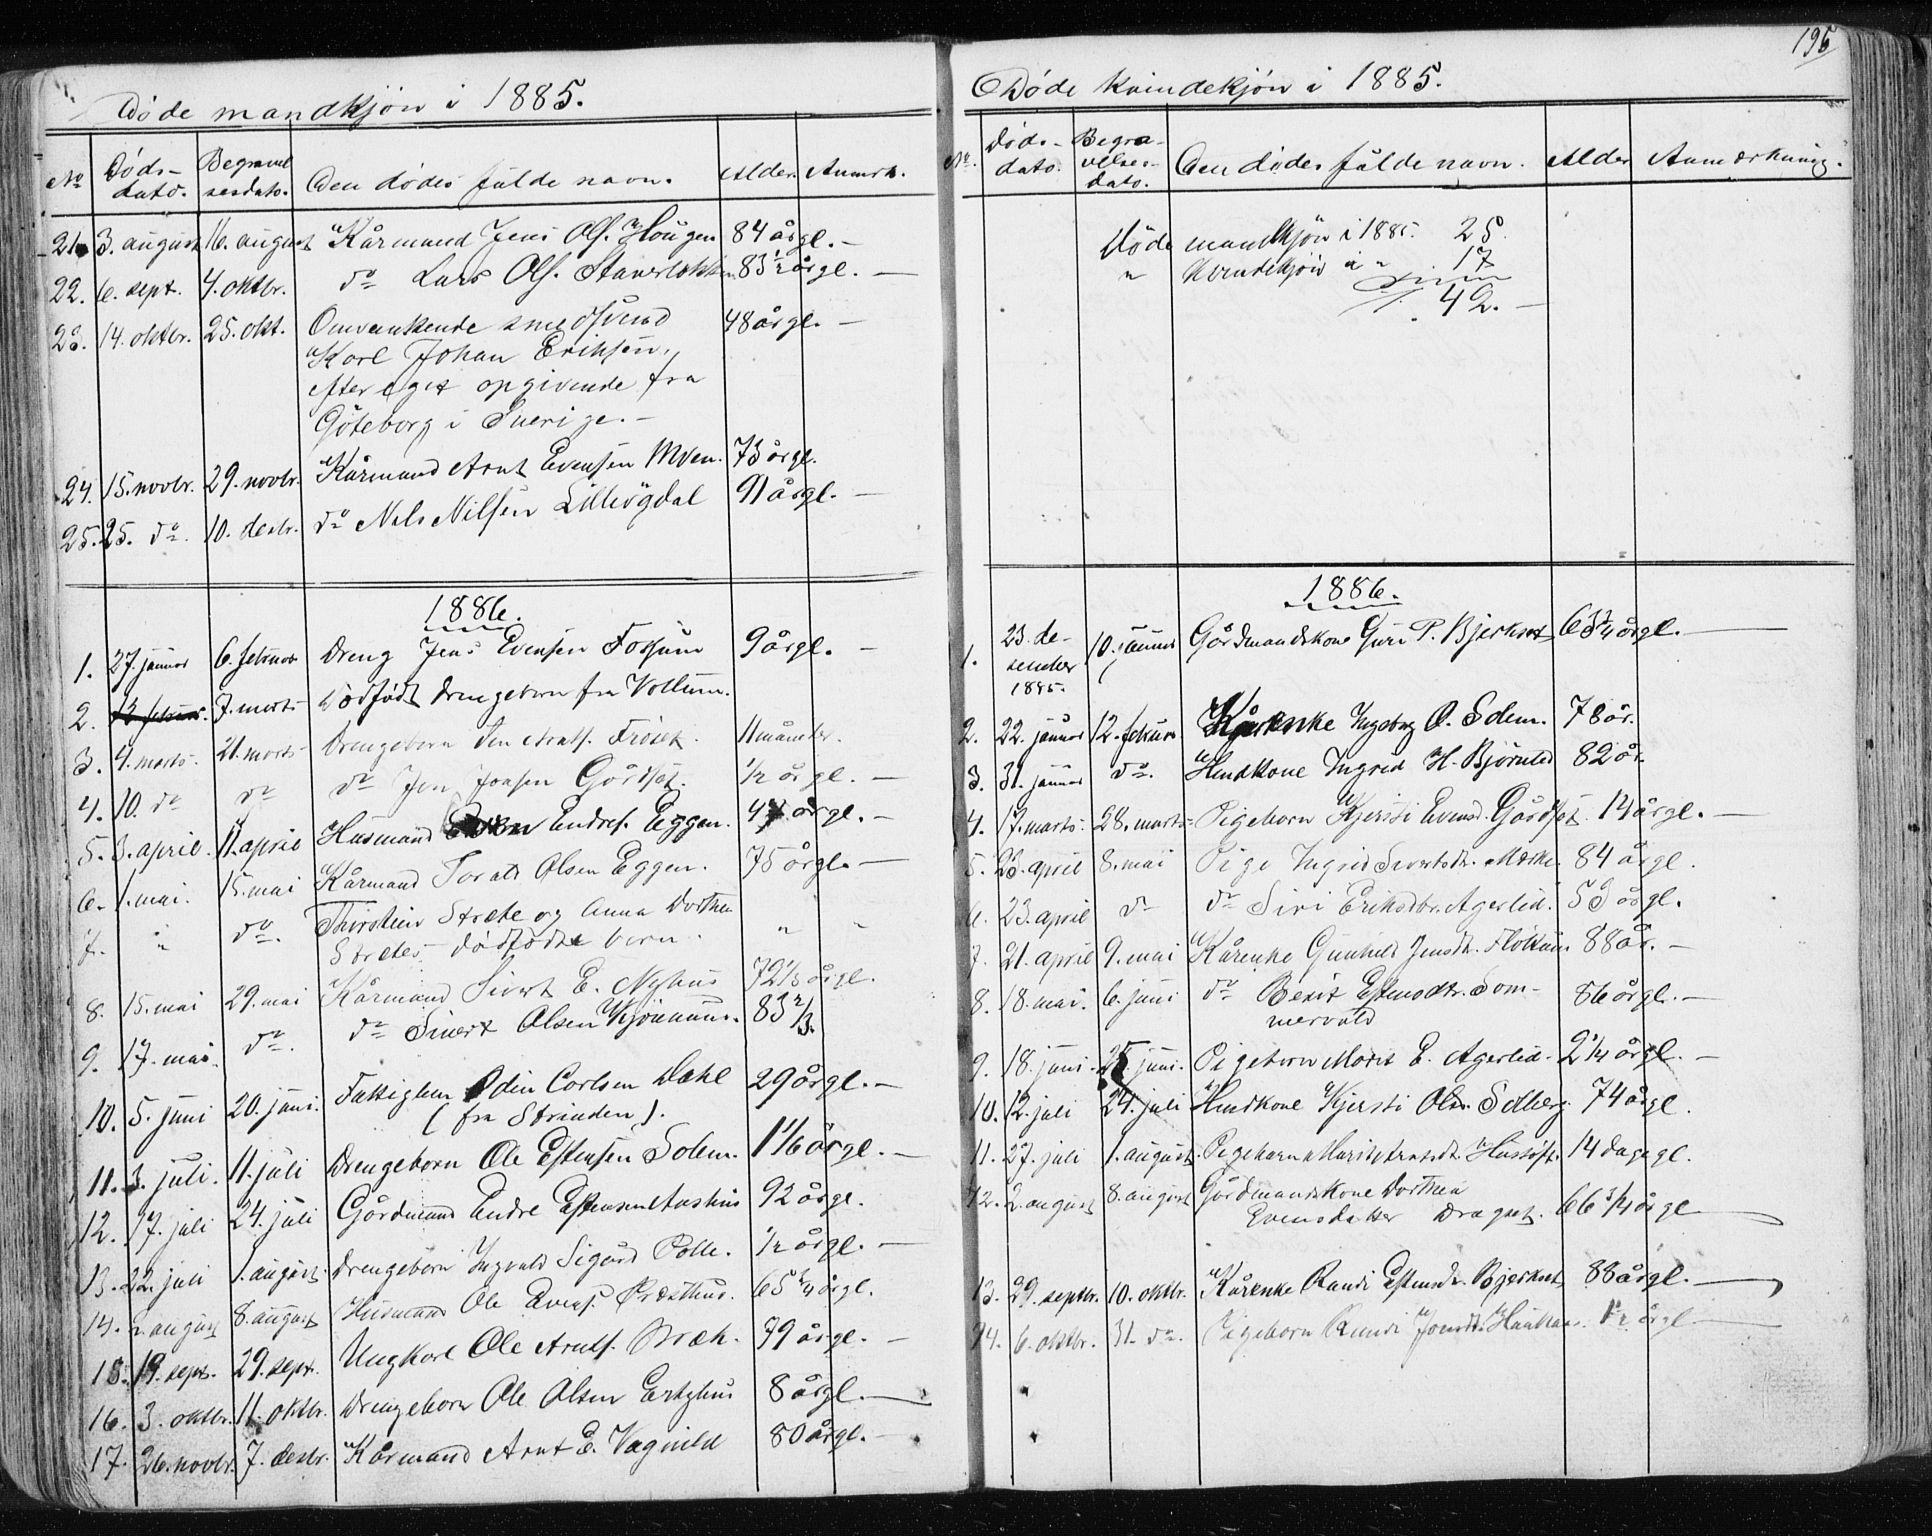 195
Døde mandkjøn i 1885.
No Døds-dato. Begravelsesdato. Den dødes fulde navn. Alder. Anmrk.
21. 3. august 16. august Kårmand Jens Ols. Hougen 84 årgl. -
22. 6. sept. 4. oktbr. do Lars Ols. 83 1/2 årgl. -
23. 14. oktbr. 25. okt. Omvankende smedsvend 48 årgl. -
Karl Johan Eriksen,
efter eget opgivende fra
Göteborg i Sverige. -
24. 15. novbr. 29. novbr. Kårmand Arnt Evensen Moen. 73 årgl.
25. 25. do. 10. desbr. do Nils Nilsen Lilleøgdal 91 årgl. -
1886.
1. 27. januar 6. februar Dreng Jens Evensen Fossum 9 årgl. -
2. 7. marts Dødfødt drengebarn fra Vollum.
3. 4. marts. 21. marts Drengebarn Arnts. Frøset. 11 månder.
4. 10. do do do Jon Jonsen Gårdset. 1/2 årgl. -
5. 3. april. 11. april Husmand Endres. Eggen. årgl. -
6. 1. mai. 15. mai Kårmand Olsen Eggen. 75 årgl. -
7. " do. Thorstein Stræte og Anna Dorthea
Strætes dødfødte barn. " "
8. 15. mai 29. mai Kårmand Sivert E. Nyhus 72 1/3 årgl.
9. 17. mai. do. do Sivert Olsen Kjønnaas. 83 2/3.
10. 5. juni 20. juni. Fattiglem Odin Carlsen Dahl 29 årgl. -
(fra Strinden).
11. 3. juli. 11. juli Drengebarn Ole Estensen Solem. 1 1/6 årgl. -
12. 17. juli 24. juli Gårdmand Endre Estensen Aashus 92 årgl.
13. 22. juli 1. august. Drengebarn Ingvald Sigurd Volle. 1/2 årgl. -
14. 2. august 8. august Husmand Ole Evens. Præsthus. 65 3/4 årgl.
15. 19. sept. 29. sept. Ungkarl Ole Arnts. Bræk. 79 årgl. -
16. 3. oktbr. 11. oktbr. Drengebarn Ole Olsen 8 årgl. -
17. 26. novbr. 7. desbr. Kårmand Arnt E. Vagnild 80 årgl. -
Døde kvindekjøn i 1885.
No. Døds-dato. Begra-velses-dato. Den dødes fulde navn. Alder Anmærkning.
Døde mandkjøn i 1885. 25.
" kvindekjøn i " 17
42. -
1886.
1. 23. desember 1885. 10. januar Gårdmandskone Guri P. Bjerkset 63 3/4 årgl. -
2. 22. januar 12. februar Kårenke Ingeborg O. Solem. 78 år.
3. 31. januar do. Hindkone Ingrid H. 82 år.
4. 17. marts. 28. marts. Pigebarn Kjersti Evensd. Gårdset. 14 årgl. -
5. 23. april 8. mai Pige Ingrid Sivertsdtr. 84 årgl.
6. 23. april do do Siri Eriksdtr. Agerlid. 53 årgl.
7. 21. april 9. mai Kårenke Gunhild Jensdtr. 88 år. -
8. 18. mai. 6. juni do Berit Estensdtr. Som-
mervold 86 årgl. -
9. 18. juni. juni. Pigebarn Marit E. Agerlid. 2 1/4 årgl. -
10. 12. juli 24. juli Hindkone Kjersti Olsd. Solberg. 74 årgl.
11. 27. juli 1. august. Pigebarn Marit 14 dage gl.
12. 2. august 8. august Gårdmandskone Dorthea
Evensdatter Dragset. 66 3/4 årgl
13. 29. septbr. 10. oktbr. Kårenke Randi Estensdtr. Bjerkset 88 årgl. -
14. 6. oktbr. 31. do. Pigebarn Randi Jonsdtr. 1 1/2 årgl -